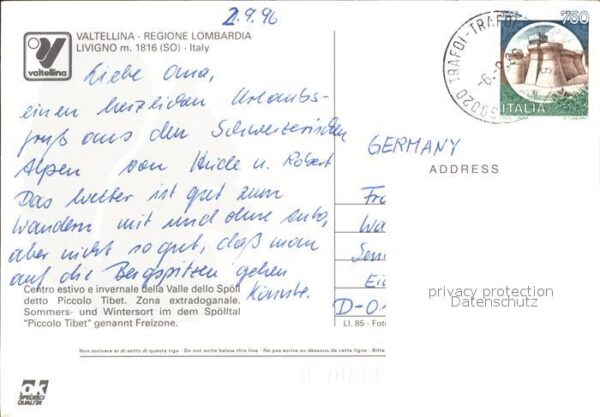 2.9.96
VALTELLINA - REGIONE LOMBARDIA
LIVIGNO m. 1816 (SO) - Italy
valtellina
Liebe Oma,
einen herzlichen Urlaubs-
gruß aus den Schweizerischen
Alpen von Heide u. Robert
Das Wetter ist gut zum
Wandern mit und ohne Auto,
aber nicht so gut, daß man
auf die Bergspitzen gehen
könnte.
Centro estivo e invernale della Valle dello Spöll
detto Piccolo Tibet. Zona extradoganale.
Sommers- und Wintersort im dem Spölltal
"Piccolo Tibet" genannt Freizone.
Non scrivere al di sotto di questa riga - Do not write below this line - Ne pas écrire au dessous de cette ligne - Bitte
OK
SPEDISCI
QUALITÀ
39020 TRAFOI - TRAFOI
-6.-9.96
750
ITALIA
GERMANY
ADDRESS
Fr
Wa
Sen
Ei
D-0
LI. 85 - Foto
privacy protection
Datenschutz